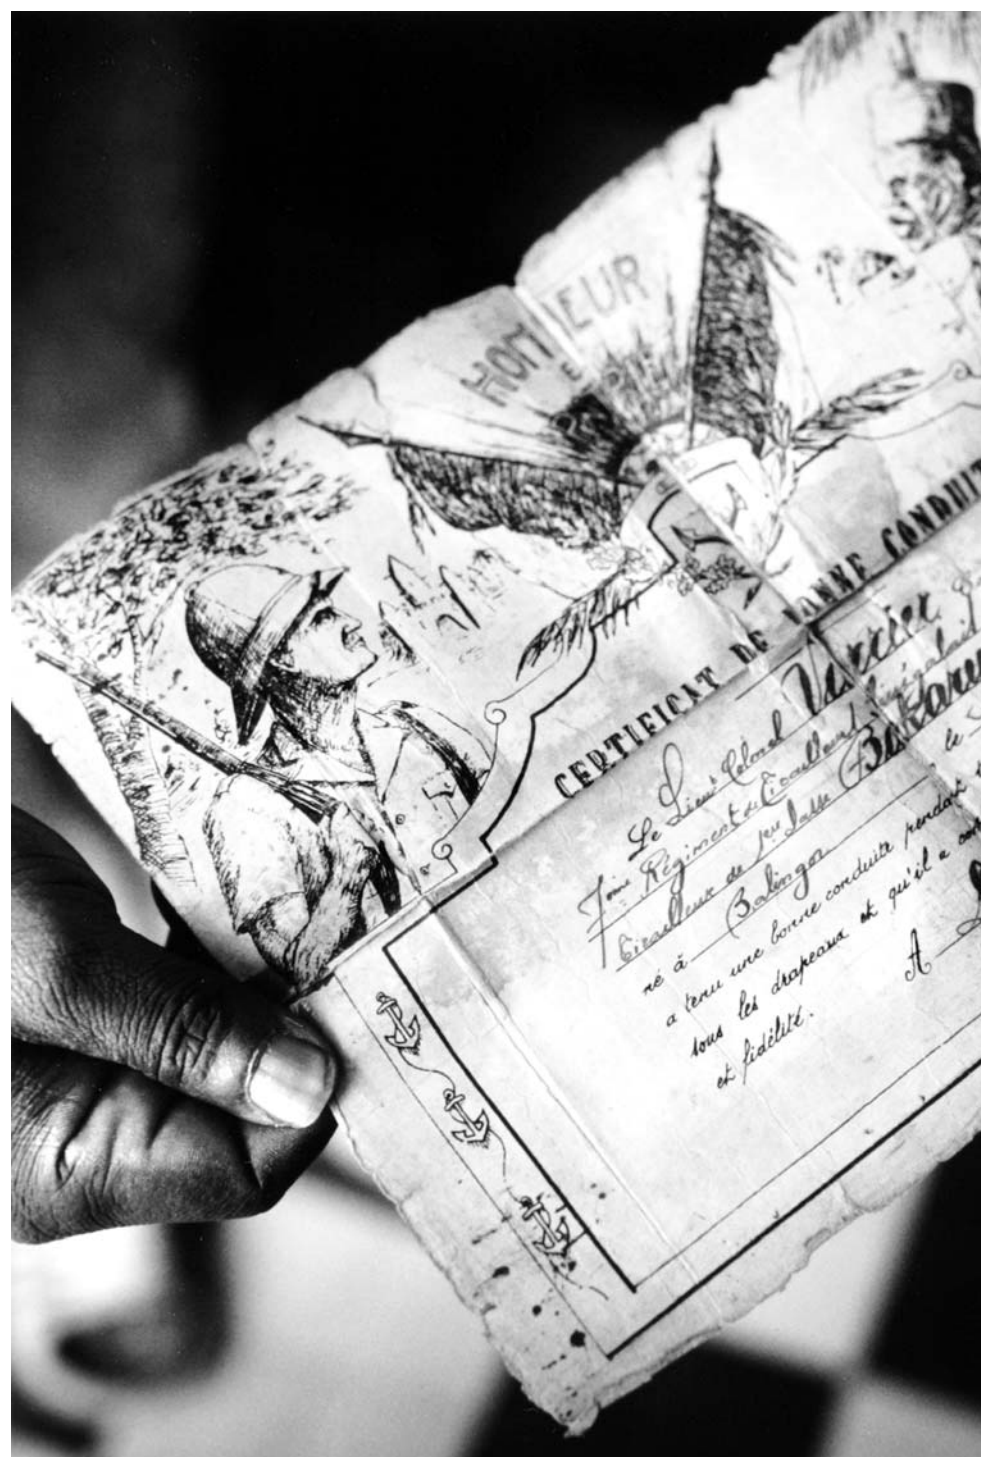 HONNEUR
CERTIFICAT DE BONNE CONDUIT
Le Lieut Colonel
7eme Régiment de Tirailleurs Sénégalais
Tirailleur de 1ere classe
né à Balingor le
a tenu une bonne conduite pendant
sous les drapeaux et qu'il a
et fidélité. A